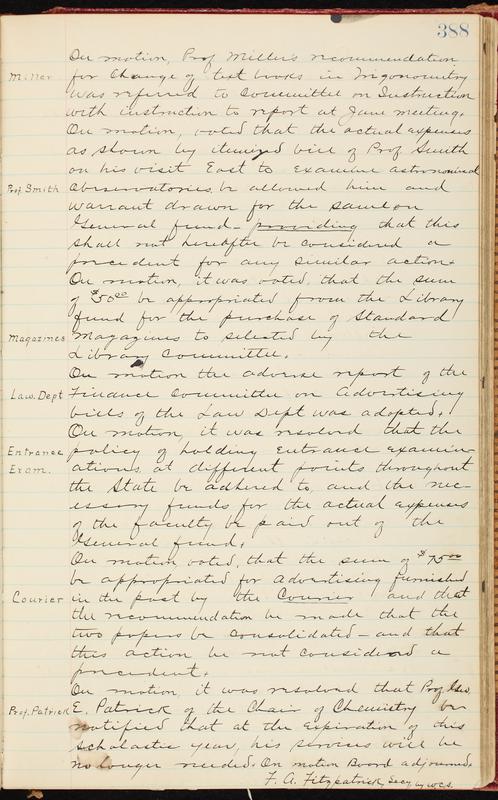 388
On motion, Prof Miller's recommendation
Miller for Change of text books in Trigonometry
was referred to Committee on Instruction
with instruction to report at June meeting.
On motion, voted that the actual expenses
as shown by itemized bill of Prof Smith
on his visit East to examine astronomical
Prof. Smith observatories, be allowed him and
warrant drawn for the same on
General fund - providing that this
shall not hereafter be considered a
precedent for any similar action.
On motion, it was voted, that the sum
of $50.00 be appropriated from the Library
fund for the purchase of Standard
Magazines Magazines to selected by the
Library Committee.
On motion the adverse report of the
Law. Dept Finance Committee on Advertising
bills of the Law Dept was adopted.
On motion, it was resolved that the
Entrance policy of holding Entrance examin-
Exam. ations, at different points throughout
the State be adhered to, and the nec-
essary funds for the actual expenses
of the faculty be paid out of the
General fund.
On motion voted, that the sum of $75.00
be appropriated for advertising furnished
Courier in the past by the Courier and that
the recommendation be made that the
two papers be consolidated - and that
this action be not considered a
precedent.
On motion, it was resolved that Prof. Geo.
Prof. Patrick E. Patrick of the Chair of Chemistry be
notified that at the expiration of this
scholastic year, his services will be
no longer needed. On motion Board adjourned.
F. A. Fitzpatrick, Secy by W.C.S.